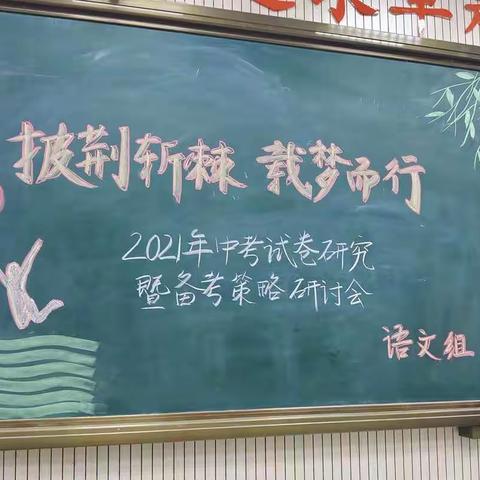 披荆斩棘 载梦而行
2021年中考试卷研究
暨备考策略研讨会
语文组